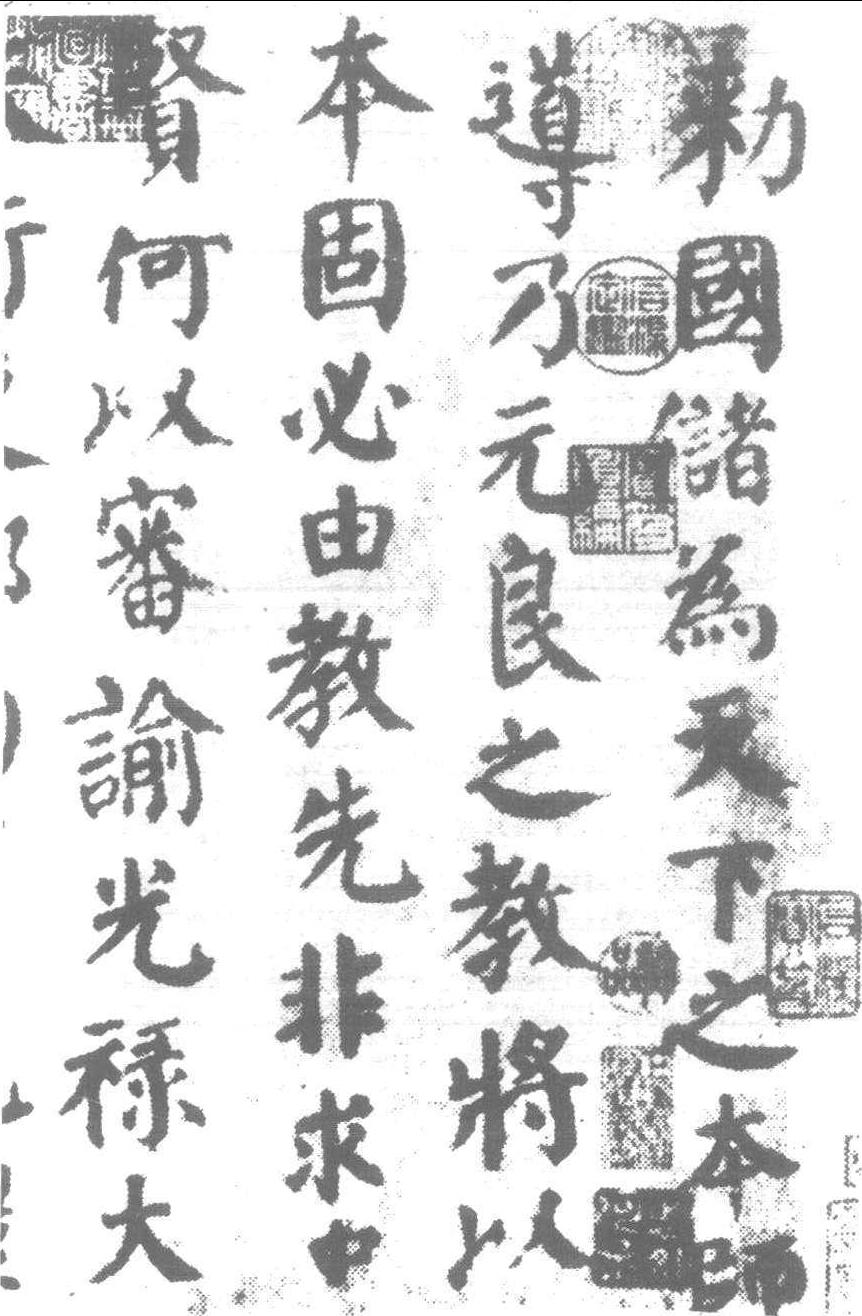 勅國儲為天下之本師
導乃元良之教將以
本固必由教先非求中
賢何以審諭光禄大